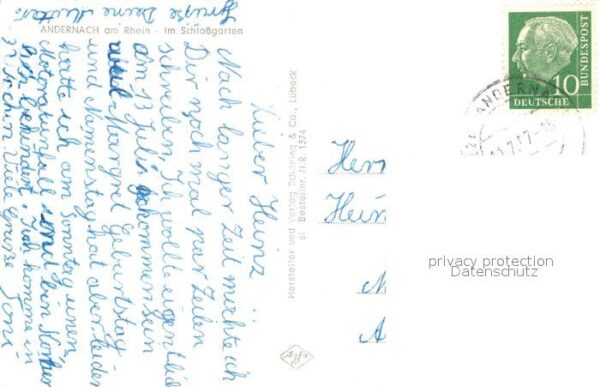 ANDERNACH am Rhein - Im Schloßgarten
Lieber Heinz
Nach langer Zeit möchte ich
Dir noch mal par Zeilen
schreiben. Ich wollte eigentlich
am 13 Juli gekommen sein
Margret Geburtstag
und Namenstag hat aber leider
hatte ich am Sonntag einen
Motorradunfall und bin
Ich komme in
3 Wochen Viele Grüße
Toni
Grüße Deine Mutter
Hersteller und Verlag Schöning & Co., Lübeck
Bestellnr. N.R. 1374
Agfa
Herr
Hein
N
A
10
DEUTSCHE
BUNDESPOST
ANDERNA
.7.57.-
privacy protection
Datenschutz